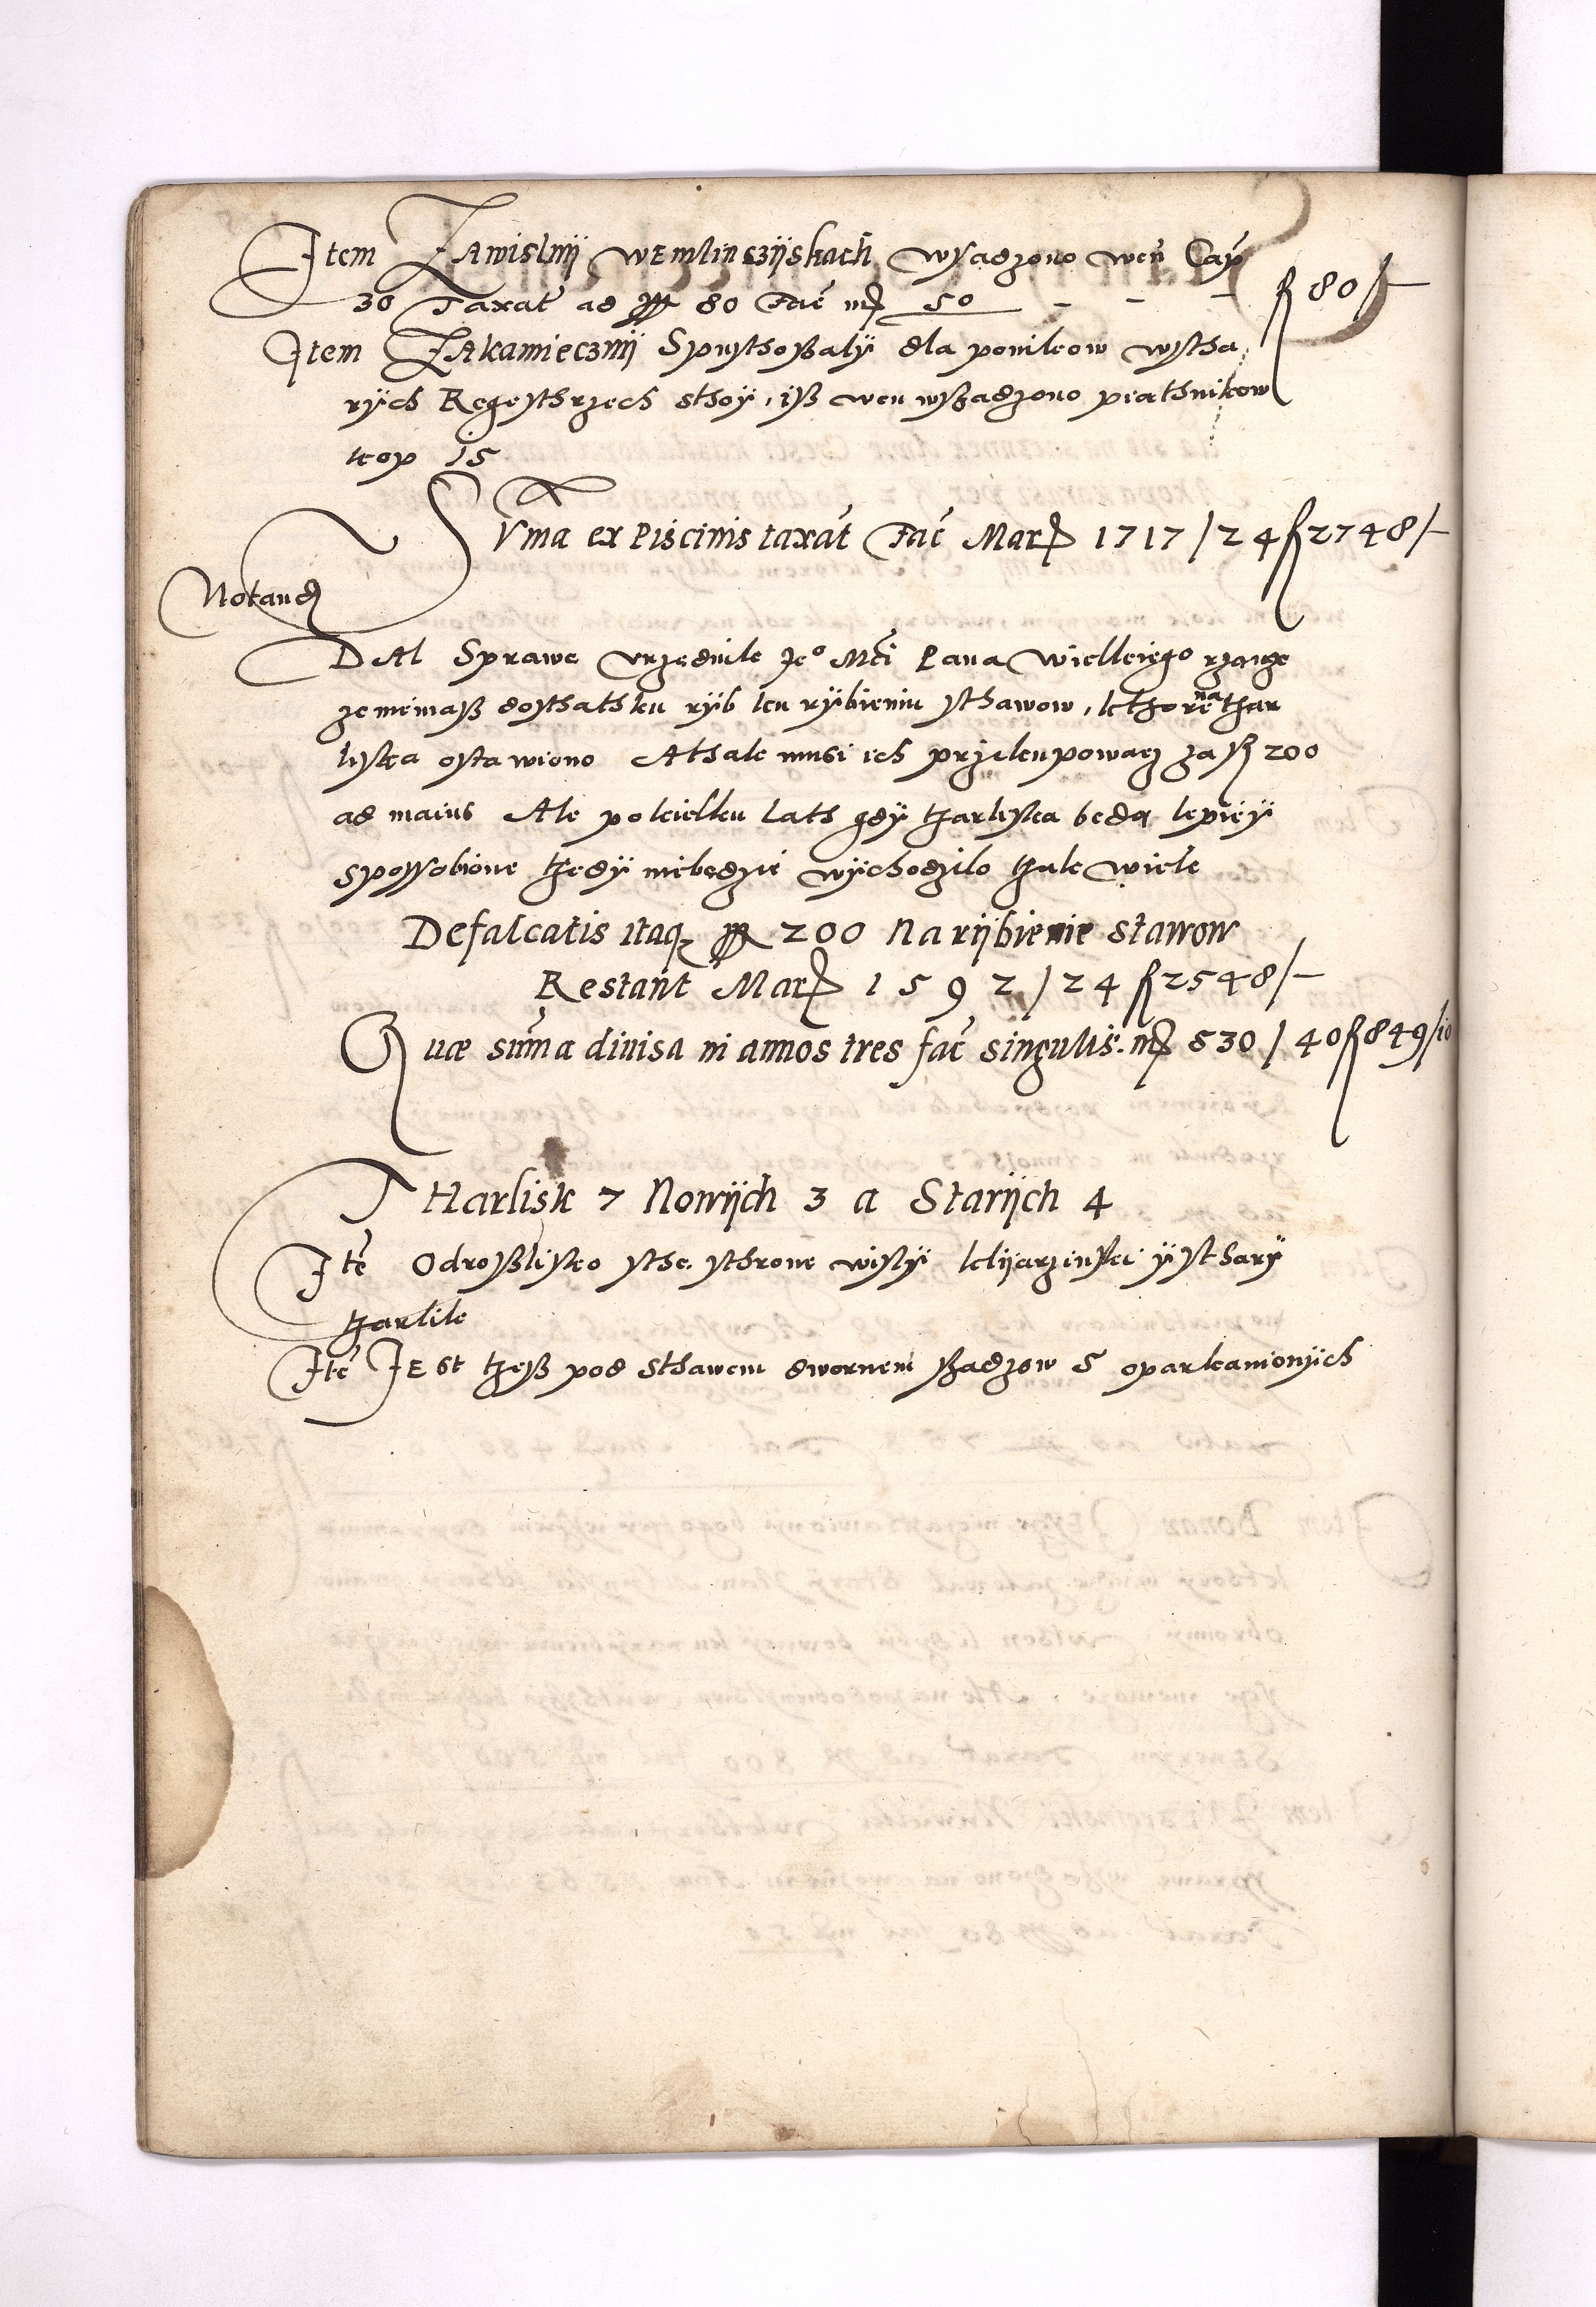 Item Zawislnÿ w Emlinczÿskach wsadzono weń Cap
30 Taxat ad ff 80 Fac m 50 - - - f 80/-
Item Zakamiecznÿ Spusthoszalÿ dla ponikow wstha
rÿch Regesthrzech sthoÿ, isz wen wszadzono piathnikow
kop 15
SVma ex Piscinis taxat Fac Mar 1717/24 f 2748/-
Notand
DAl Sprawe vrzednik Jeo Mći Pana Wielkiego rządze
ze niemasz dosthathku rÿb ku rÿbieniu sthawow, kthore na thar
liska ostawiono Athak musi ich przikupowacz za f 200
ad maius Ale po kielku lath gdÿ tharliska beda lepieÿ
spossobione thedÿ niebedzie wÿchodzilo thak wiele
Defalcatis itaq ff 200 Na rÿbienie stawow
Restant Mar 1592/24 f 2548/-
Quæ suma diuisa in annos tres fac singulis m 530/40 f 849/10
THarlisk 7 Nowÿch 3 a Starÿch 4
Ite Odroszlisko sthe sthrone wislÿ klÿarzinski ÿ stharÿ
tharlik
Ite JEst thesz pod sthawem dwornem szadzow 5 oparkanionÿch